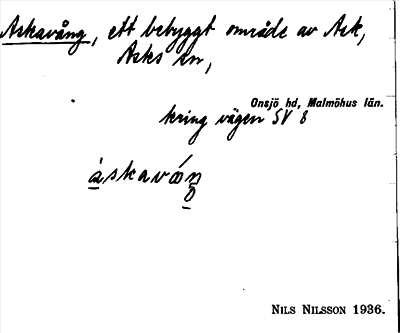 Askavång, ett bebyggt område av Ask,
Asks sn,
Onsjö hd, Malmöhus län.
kring vägen SV 8
NILS NILSSON 1936.